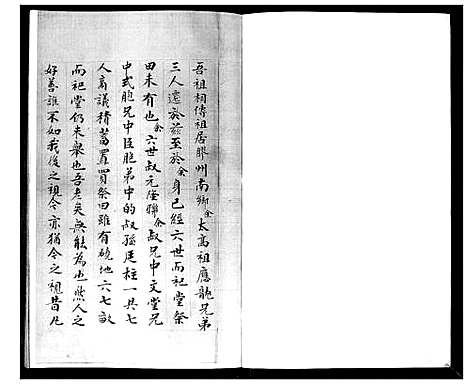 吾祖相傳祖居膠州南鄉余太高祖應龍兄弟
三人遷於茲至於余身已經六世而祀堂祭
田未有也余六世叔元隆聯余叔兄中文堂兄
中式胞兄中臣胞弟中的叔孫廷柱一共七
人商議積蓄置買祭田雖有硗地六七畝
而祀堂仍未舉也吾老矣無能為也然人之
好善誰不如我後之視今亦猶今之視昔凡